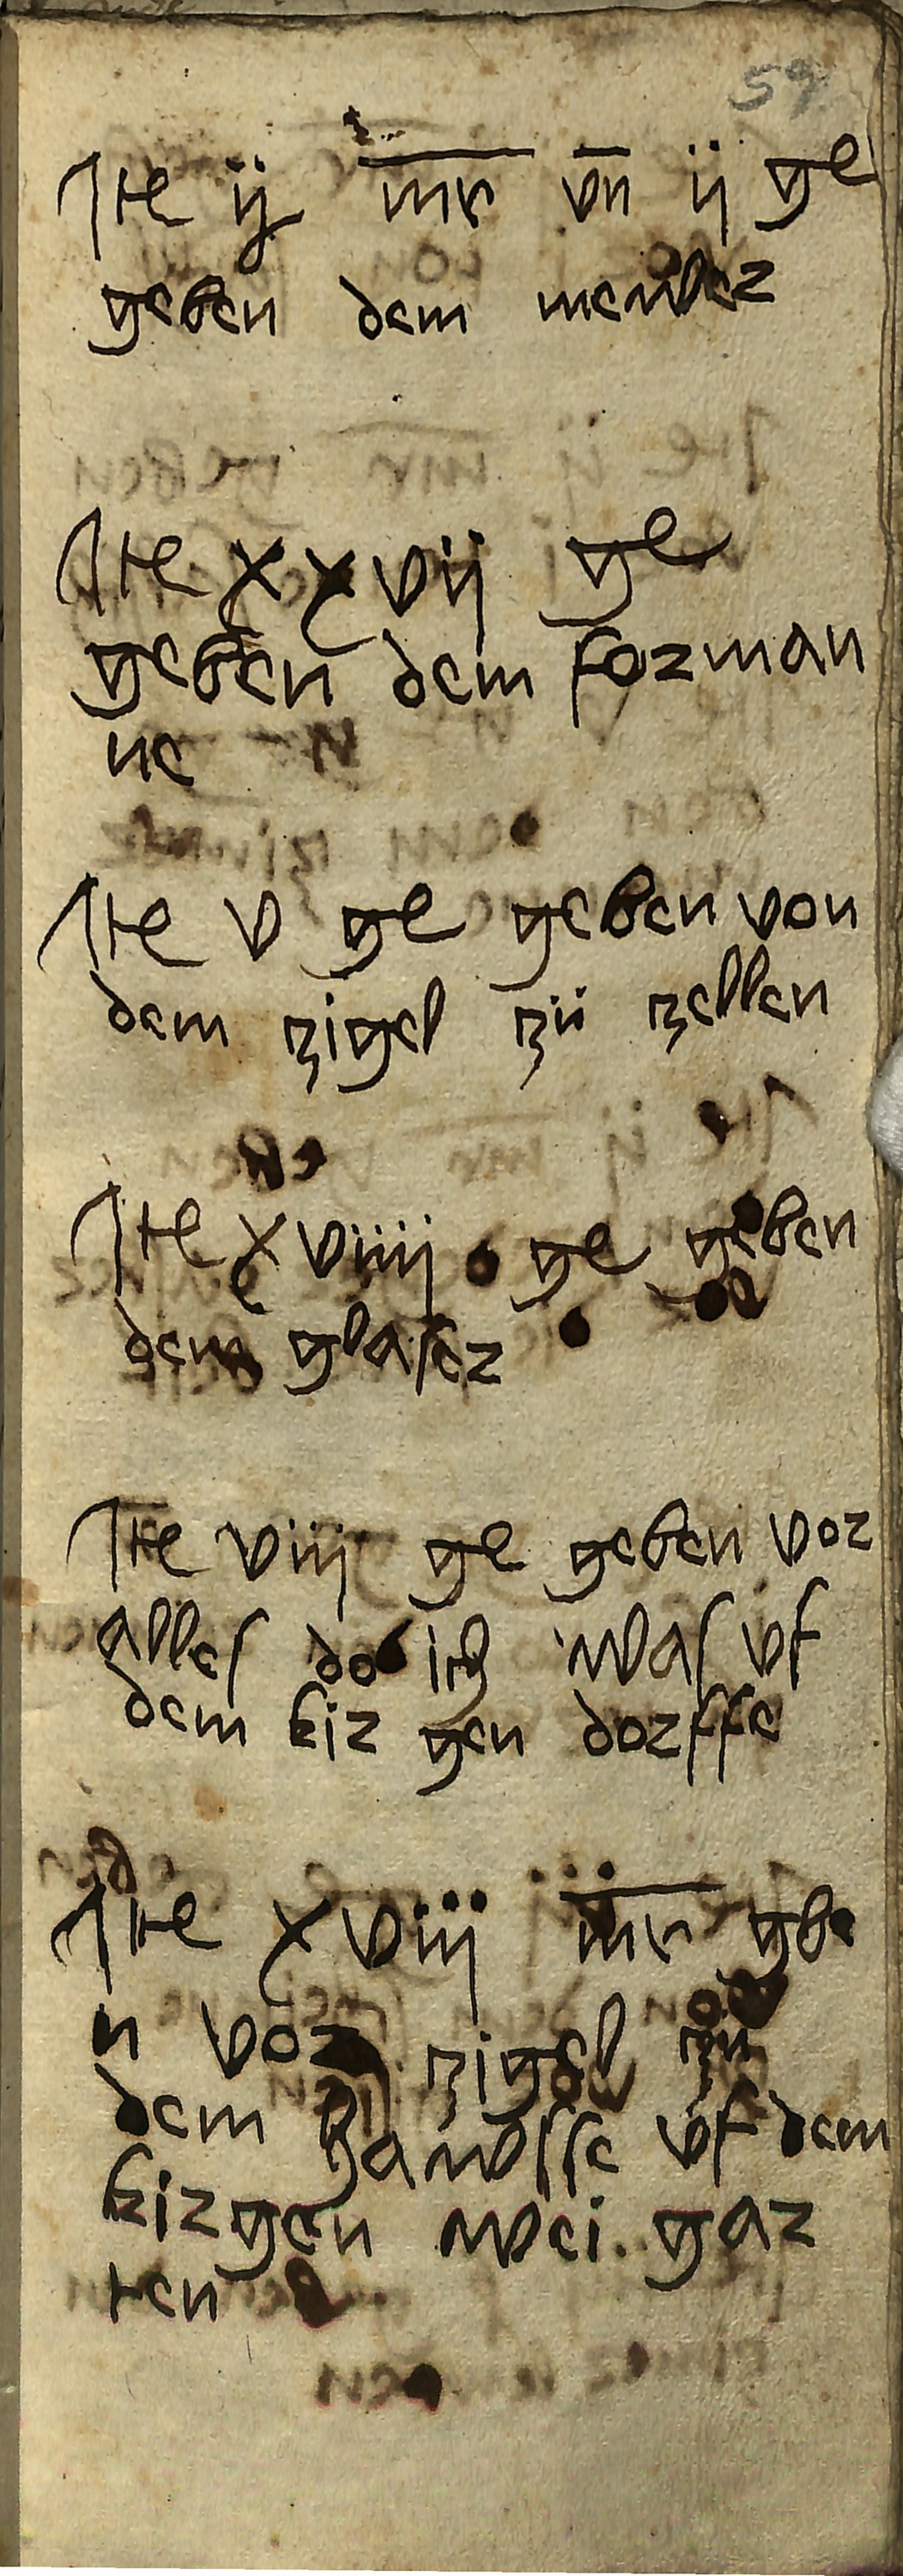 59
Ite ij mr vn ij ge
geben dem menlez
Ite xxvij ge
geben dem forman
ne
Ite v ge geben von
dem zigel zü zellen
Ite xviiij ge geben
dem glaſer
Ite viij ge geben vor
alleſ do ich waſ vf
dem kir gen dorffe
Ite xviij mr gbe
n vor zigel zü
dem hawſſe vf dem
kirgen wei gar
ten